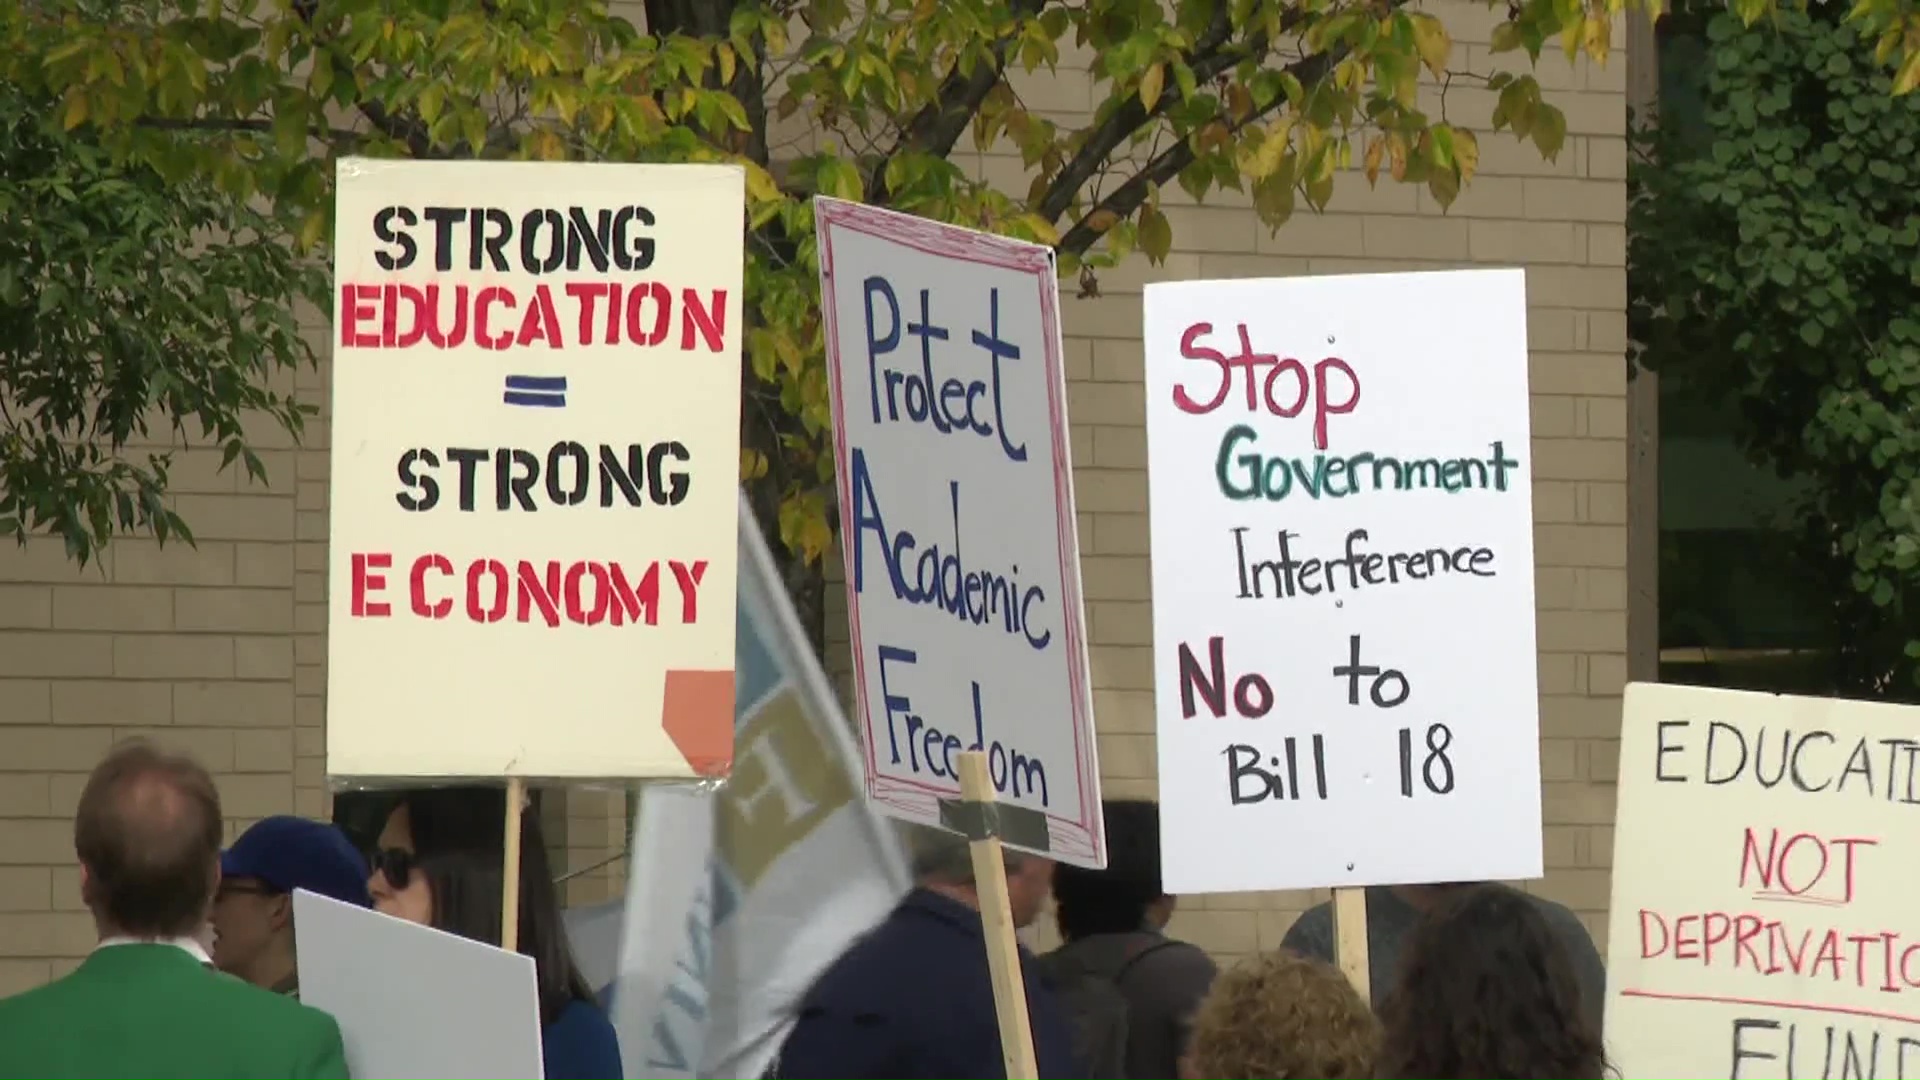 STRONG
EDUCATION
=
STRONG
ECONOMY
Protect
Academic
Freedom
Stop
Government
Interference
No to
Bill 18
EDUCATI
NOT
DEPRIVATIO
FUND